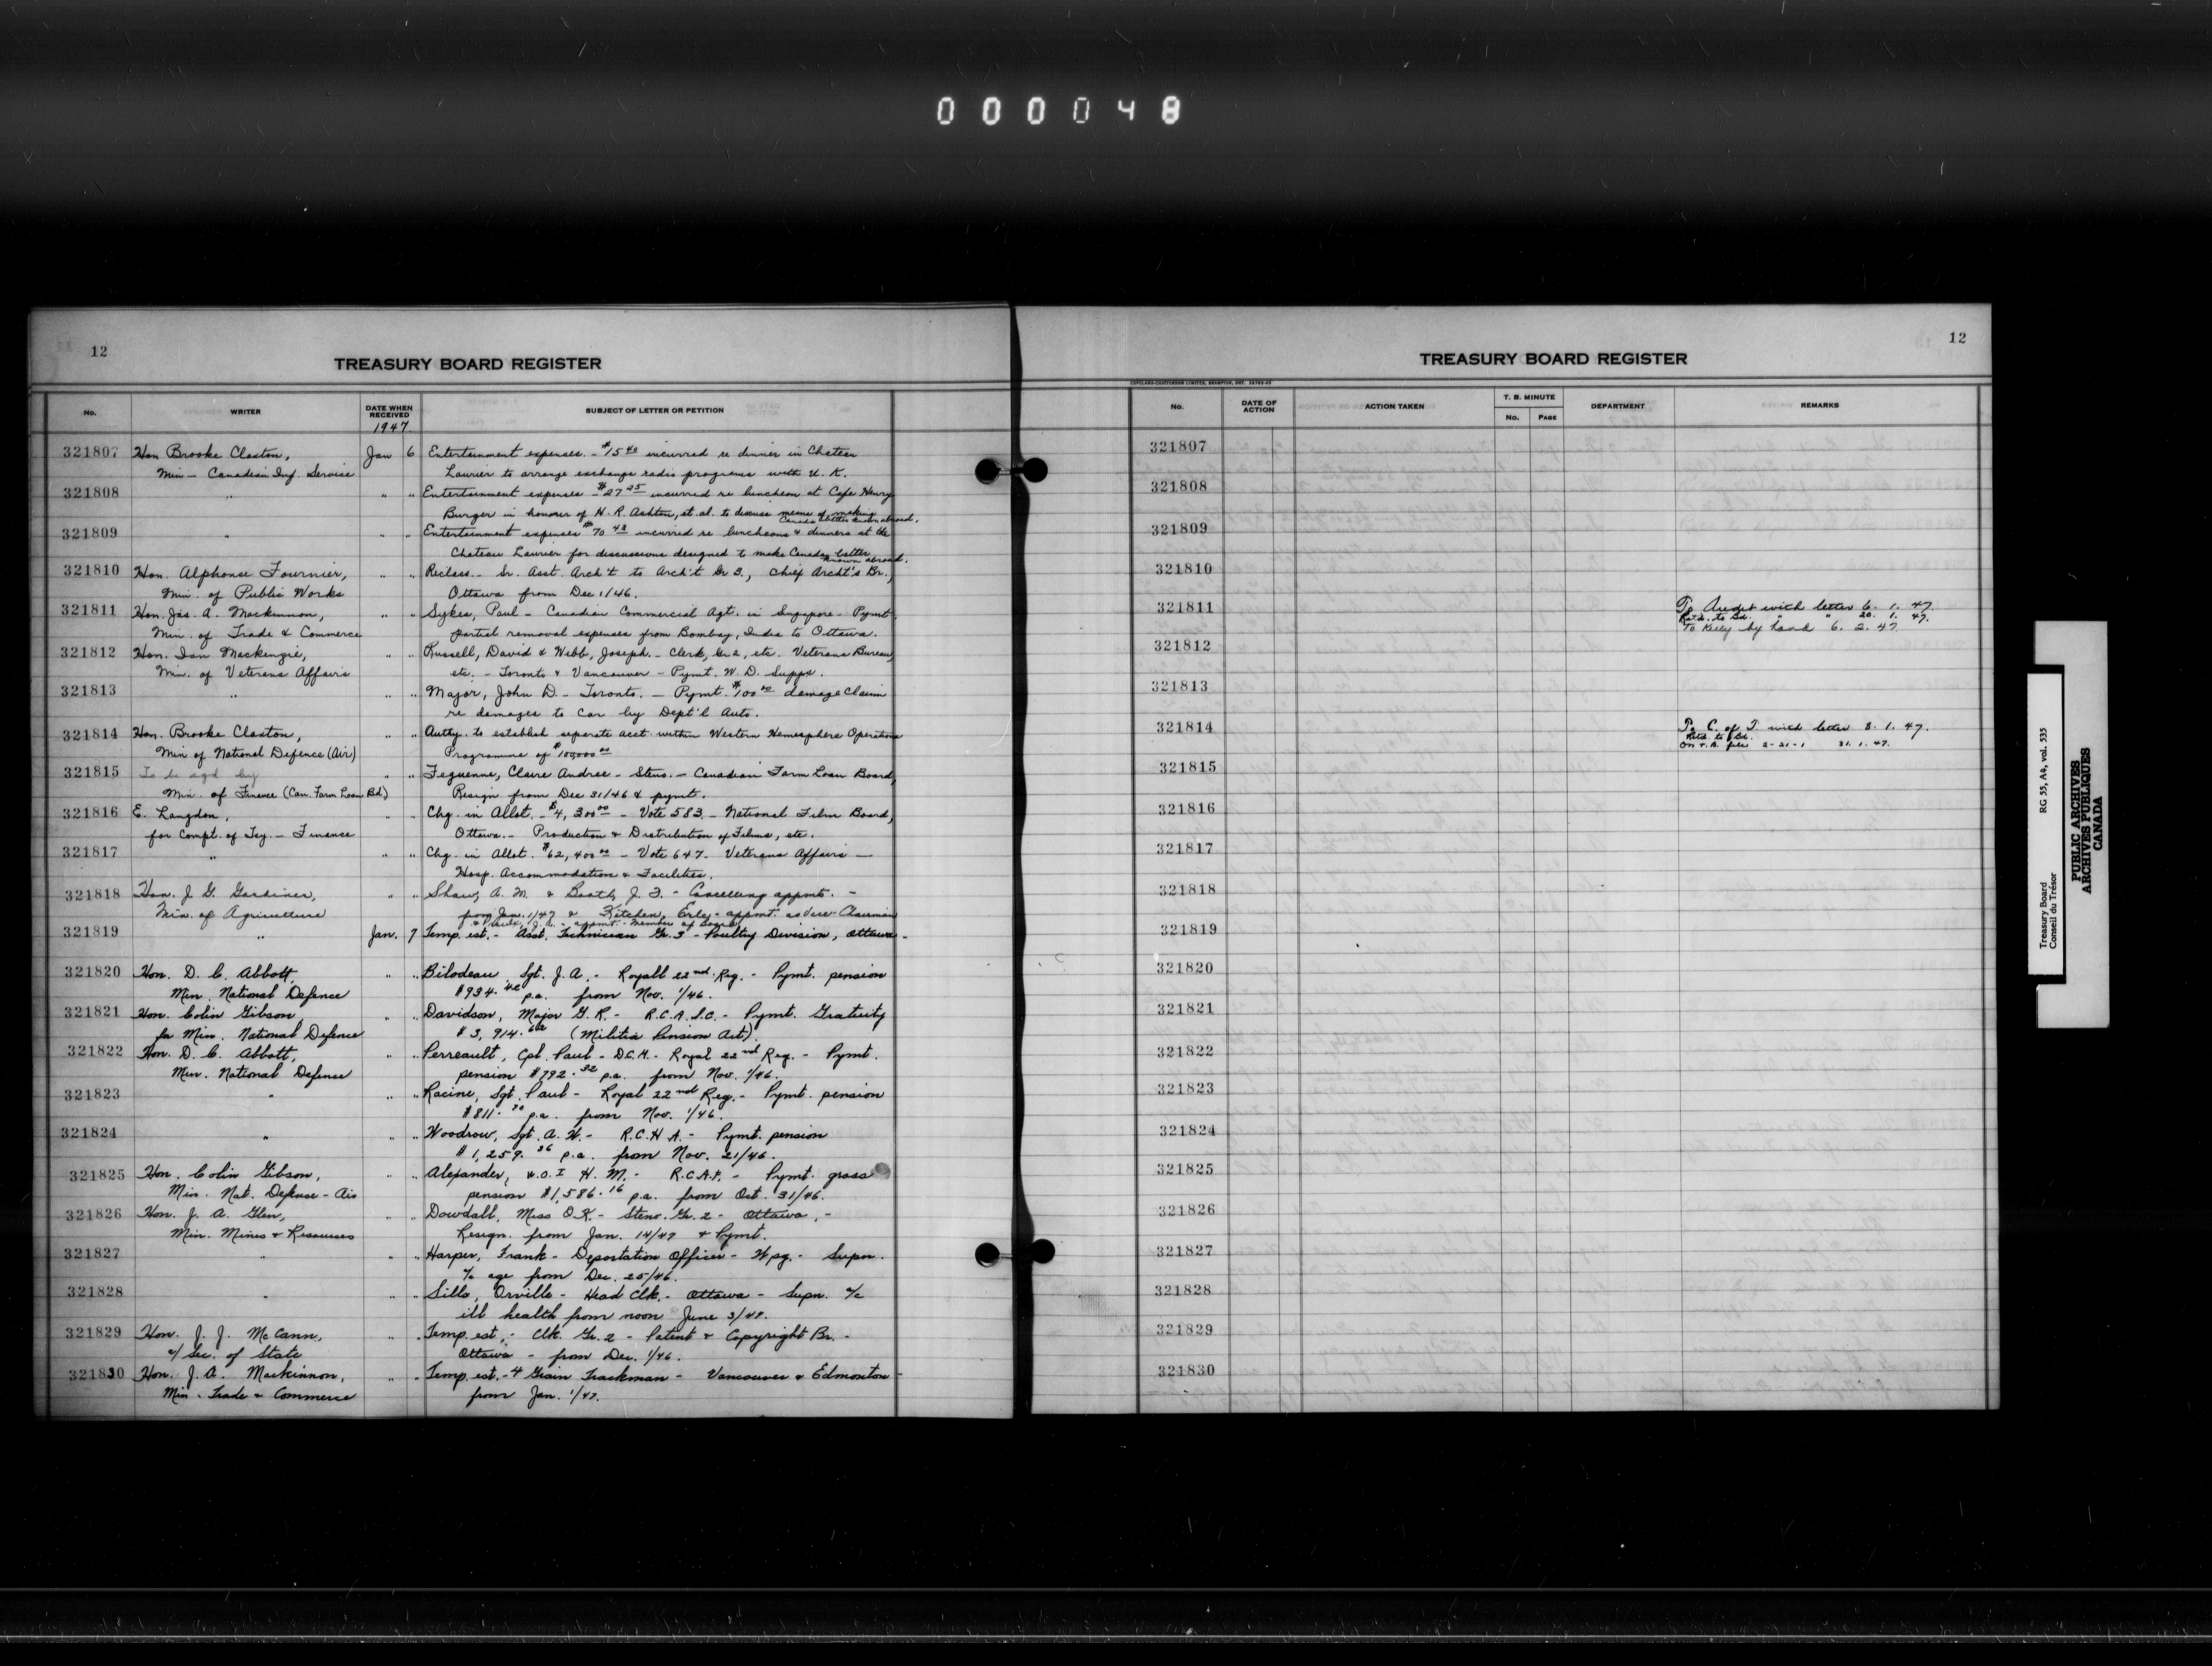 000048
12
TREASURY BOARD REGISTER
No. WRITER DATE WHEN RECEIVED SUBJECT OF LETTER OR PETITION
1947
321807 Hon Brooke Claxton, Jan 6 Entertainment expenses. - $15.40 incurred re dinner in Chateau
Min - Canadian Inf. Service Laurier to arrange exchange radio programs with U. K.
321808 " " " Entertainment expenses - $27.25 incurred re luncheon at Cafe Henry
Burger in honour of H. R. Ashton, et. al. to discuss means of making
Canada better known abroad.
321809 " " " Entertainment expenses $70.48 incurred re luncheons & dinners at the
Chateau Laurier for discussions designed to make Canada better
known abroad.
321810 Hon. Alphonse Fournier, " " Reclass. - Sr. Asst. Arch't to Arch't Gr 3., Chief Archt's Br.,
Min. of Public Works Ottawa from Dec 1/46.
321811 Hon. Jas. A. Mackinnon, " " Sykes, Paul - Canadian Commercial Agt. in Singapore - Pymt.
Min. of Trade & Commerce partial removal expenses from Bombay, India to Ottawa.
321812 Hon. Ian Mackenzie, " " Russell, David & Webb, Joseph. - Clerk, Gr 2, etc. Veterans Bureau,
Min. of Veterans Affairs etc. - Toronto & Vancouver - Pymt. W. D. Supps.
321813 " " " Major, John D. - Toronto. - Pymt. $100.00 damage claim
re damages to car by Dept'l Auto.
321814 Hon. Brooke Claxton, " " Authy. to establish separate acct. within Western Hemisphere Operations
Min of National Defence (Air) Programme of $100,000.00
321815 To be sgd by " " Claire Andree - Steno. - Canadian Farm Loan Board,
Min. of Finance (Can. Farm Loan Bd.) Resign from Dec 31/46 & pymt.
321816 E. Langdon, " " Chg. in Allot. - $4,300.00 - Vote 583. - National Film Board,
for Compt. of Tsy. - Finance Ottawa. - Production & Distribution of Films, etc.
321817 " " " Chg. in Allot. $62,400.00 - Vote 647. Veterans Affairs -
Hosp. Accommodation & Facilities.
321818 Hon. J. G. Gardiner, " " Shaw, A. M. & Booth, J. F. - Cancelling appmts. -
Min. of Agriculture from Jan. 1/47 & Kitchen, Erle - appmt. as Vice-Chairman
J. A. - appmt. - Member of Board
321819 " Jan. 7 Temp. est. - Asst. Technician Gr. 3 - Poultry Division, Ottawa -
321820 Hon. D. C. Abbott, " " Bilodeau, Sgt. J. A. - Royall 22nd Reg. - Pymt. pension
Min. National Defence $934. p.a. from Nov. 1/46.
321821 Hon. Colin Gibson, " " Davidson, Major G. R. - R.C.A.S.C. - Pymt. Gratuity
for Min. National Defence $3,914. (Militia Pension Act).
321822 Hon. D. C. Abbott, " " Perreault, Cpl. Paul - D.C.M. - Royal 22nd Reg. - Pymt.
Min. National Defence pension $792.32 p.a. from Nov. 1/46.
321823 " " " Racine, Sgt. Paul - Royal 22nd Reg. - Pymt. pension
$811. p.a. from Nov. 1/46.
321824 " " " Woodrow, Sgt. A. W. - R.C.H.A. - Pymt. pension
$1,259.36 p.a. from Nov. 21/46.
321825 Hon. Colin Gibson, " " Alexander, W.O.I H. M. - R.C.A.F. - Pymt. gross
Min. Nat. Defense - Air pension $1,586.16 p.a. from Oct. 31/46.
321826 Hon. J. A. Glen, " " Dowdall, Miss O.K. - Steno. Gr. 2 - Ottawa, -
Min. Mines & Resources Resign. from Jan. 14/47 & Pymt.
321827 " " " Harper, Frank - Deportation Officer - Wpg. - Supn.
a/c age from Dec. 25/46.
321828 " " " Sills, Orville - Head Clk. - Ottawa - Supn. a/c
ill health from noon June 3/47.
321829 Hon. J. J. McCann, " " Temp. est. - Clk. Gr. 2 - Patent & Copyright Br. -
a/ Sec. of State Ottawa - from Dec. 1/46.
321830 Hon. J. A. Mackinnon, " " Temp. est. - 4 Grain Trackman - Vancouver & Edmonton -
Min. Trade & Commerce from Jan. 1/47.
12
TREASURY BOARD REGISTER
COPELAND-CHATTERSON LIMITED, BRAMPTON, ONT.
No. DATE OF ACTION ACTION TAKEN T. B. MINUTE No. PAGE DEPARTMENT REMARKS
321807
321808
321809
321810
321811 To Audit with letter 6. 1. 47.
Retd. to Bd. " " 20. 1. 47.
To Kelly by hand 6. 2. 47
321812
321813
321814 To C. of T. with letter 8. 1. 47.
Retd. to Bd.
On T.B. file 2-21-1 31. 1. 47.
321815
321816
321817
321818
321819
321820
321821
321822
321823
321824
321825
321826
321827
321828
321829
321830
Treasury Board RG 55, A4, vol. 535
Conseil du Trésor
PUBLIC ARCHIVES
ARCHIVES PUBLIQUES
CANADA